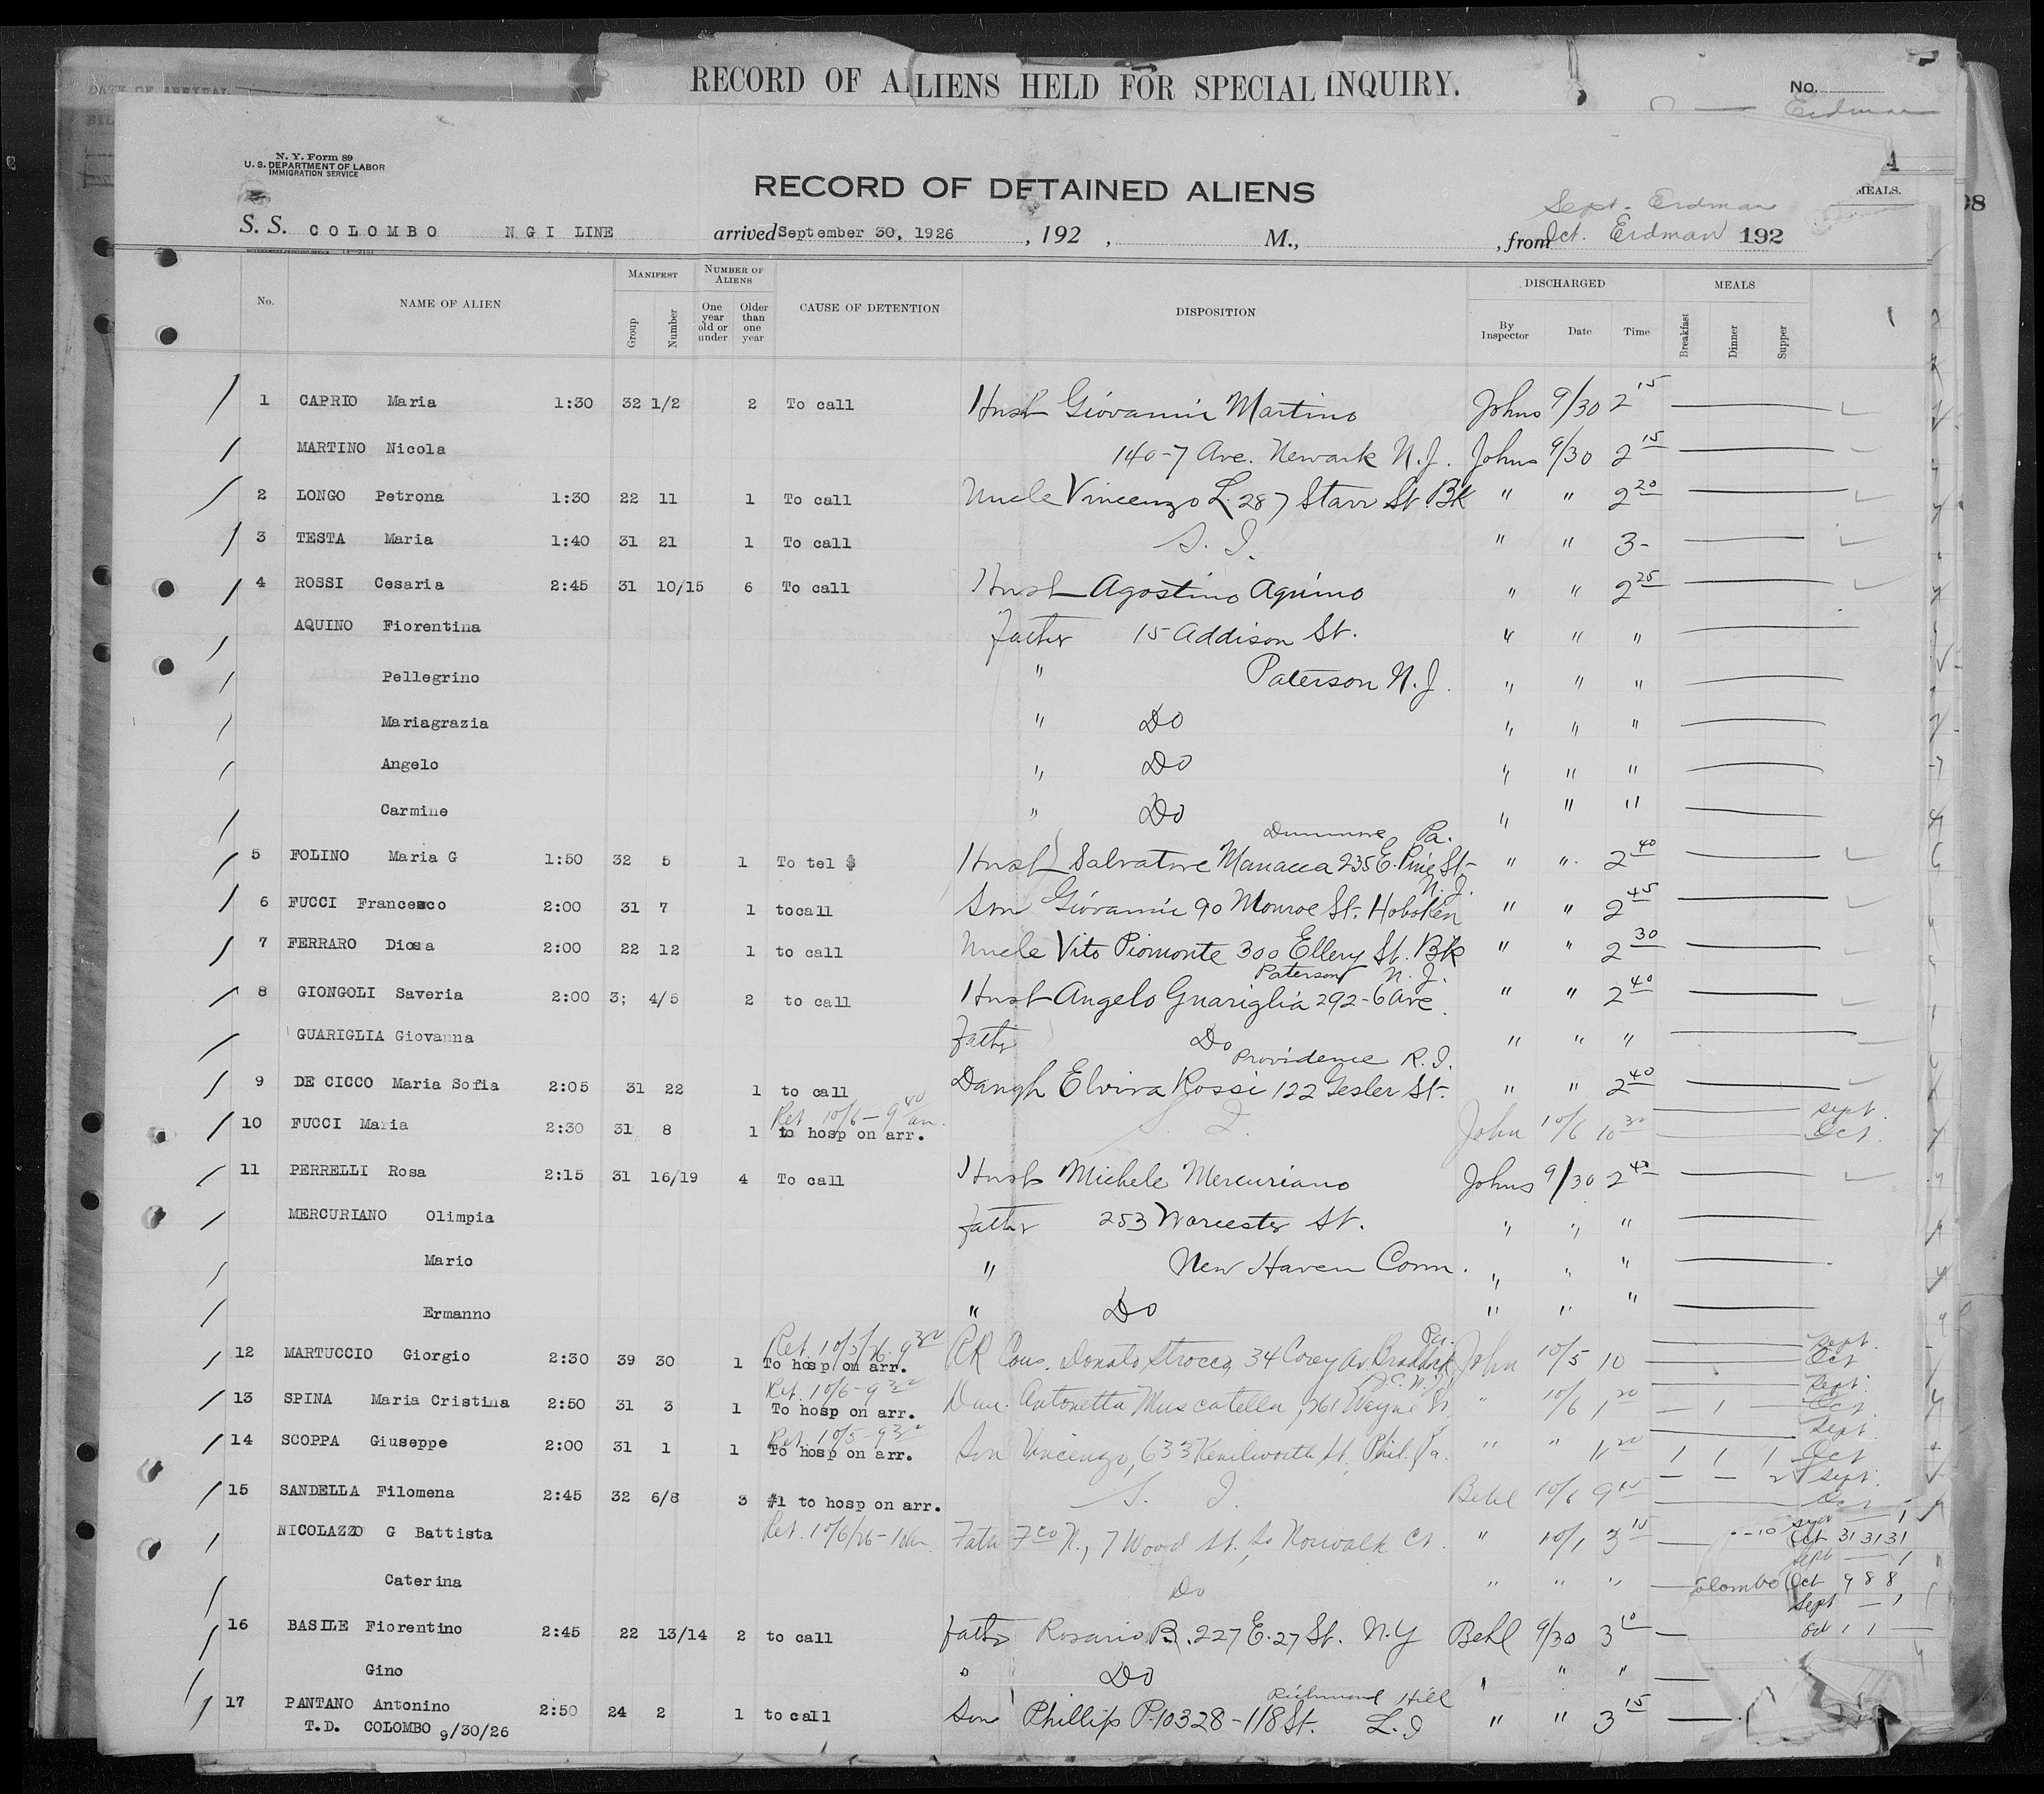 RECORD OF ALIENS HELD FOR SPECIAL INQUIRY.
No.
Erdman
DATE OF ARRIVAL
N. Y. Form 89
U. S. DEPARTMENT OF LABOR
IMMIGRATION SERVICE
RECORD OF DETAINED ALIENS
MEALS.
98
Sept. Erdman
S. S. COLOMBO NGI LINE arrived September 30, 1926, 192 , M., , from Oct. Erdman 192
No. NAME OF ALIEN MANIFEST Group Number NUMBER OF ALIENS One year old or under Older than one year CAUSE OF DETENTION DISPOSITION DISCHARGED By Inspector Date Time MEALS Breakfast Dinner Supper
1 CAPRIO Maria 1:30 32 1/2 2 To call Husb Giovanni Martino Johns 9/30 2 15
MARTINO Nicola 140-7 Ave. Newark N.J. Johns 9/30 2 15
2 LONGO Petrona 1:30 22 11 1 To call Uncle Vincenzo L. 287 Starr St. Bk " " 2 20
3 TESTA Maria 1:40 31 21 1 To call S. I. " " 3-
4 ROSSI Cesaria 2:45 31 10/15 6 To call Husb Agostino Aquino " " 2 25
AQUINO Fiorentina Father 15 Addison St. " " "
Pellegrino " Paterson N.J. " " "
Mariagrazia " Do " " "
Angelo " Do " " "
Carmine " Do " " "
Dunmore Pa.
5 FOLINO Maria G 1:50 32 5 1 To tel $ Husb Salvatore Manacea 235 E. Pine St. " " 2 40
N.J.
6 FUCCI Francesco 2:00 31 7 1 tocall Son Giovanni 90 Monroe St. Hoboken " " 2 45
7 FERRARO Diosa 2:00 22 12 1 to call Uncle Vito Piomonte 300 Ellery St. Bk " " 2 30
Paterson N.J.
8 GIONGOLI Saveria 2:00 3; 4/5 2 to call Husb Angelo Guariglia 292-6 Ave. " " 2 40
GUARIGLIA Giovanna Father Do " " "
Providence R.I.
9 DE CICCO Maria Sofia 2:05 31 22 1 to call Daugh Elvira Rossi 122 Gesler St. " " 2 40
Ret. 10/6-9 40 am. Sept.
10 FUCCI Maria 2:30 31 8 1 to hosp on arr. S. I. John 10/6 10 30 Oct.
11 PERRELLI Rosa 2:15 31 16/19 4 To call Husb Michele Mercuriano Johns 9/30 2 40
MERCURIANO Olimpia Father 253 Worcester St. " " "
Mario " New Haven Conn. " " "
Ermanno " Do " " "
Ret. 10/5/26-9 30 Pa. Sept.
12 MARTUCCIO Giorgio 2:30 39 30 1 To hosp on arr. RR Cous. Donato Strocco, 34 Corey Av. Braddock John 10/5 10 Oct
Ret. 10/6-9 30 J.C. N.J. Sept.
13 SPINA Maria Cristina 2:50 31 3 1 To hosp on arr. Dau. Antonetta Muscatella, 261 Wayne St. " 10/6 1 20 1 Oct
Ret. 10/5-9 30 Sept.
14 SCOPPA Giuseppe 2:00 31 1 1 To hosp on arr. Son Vincenzo, 633 Kenilworth St. Phil. Pa. " " 1 20 1 1 1 Oct
15 SANDELLA Filomena 2:45 32 6/8 3 #1 to hosp on arr. S. I. Behl 10/6 9 15 2 Sept. Oct
NICOLAZZO G Battista Ret. 10/6/26- Fath Fco N., 7 Wood St., So Norwalk Ct. " 10/1 3 15 Oct 31 31 31
Sept 1
Caterina Do " " " Colombo Oct 9 8 8
Sept 1
16 BASILE Fiorentino 2:45 22 13/14 2 to call Father Rosario B. 227 E. 27 St. N.Y Behl 9/30 3 10 Oct 1 1
Gino " Do " " "
Richmond Hill
17 PANTANO Antonino 2:50 24 2 1 to call Son Phillips P. 10328-118 St. L.I " " 3 15
T.D. COLOMBO 9/30/26